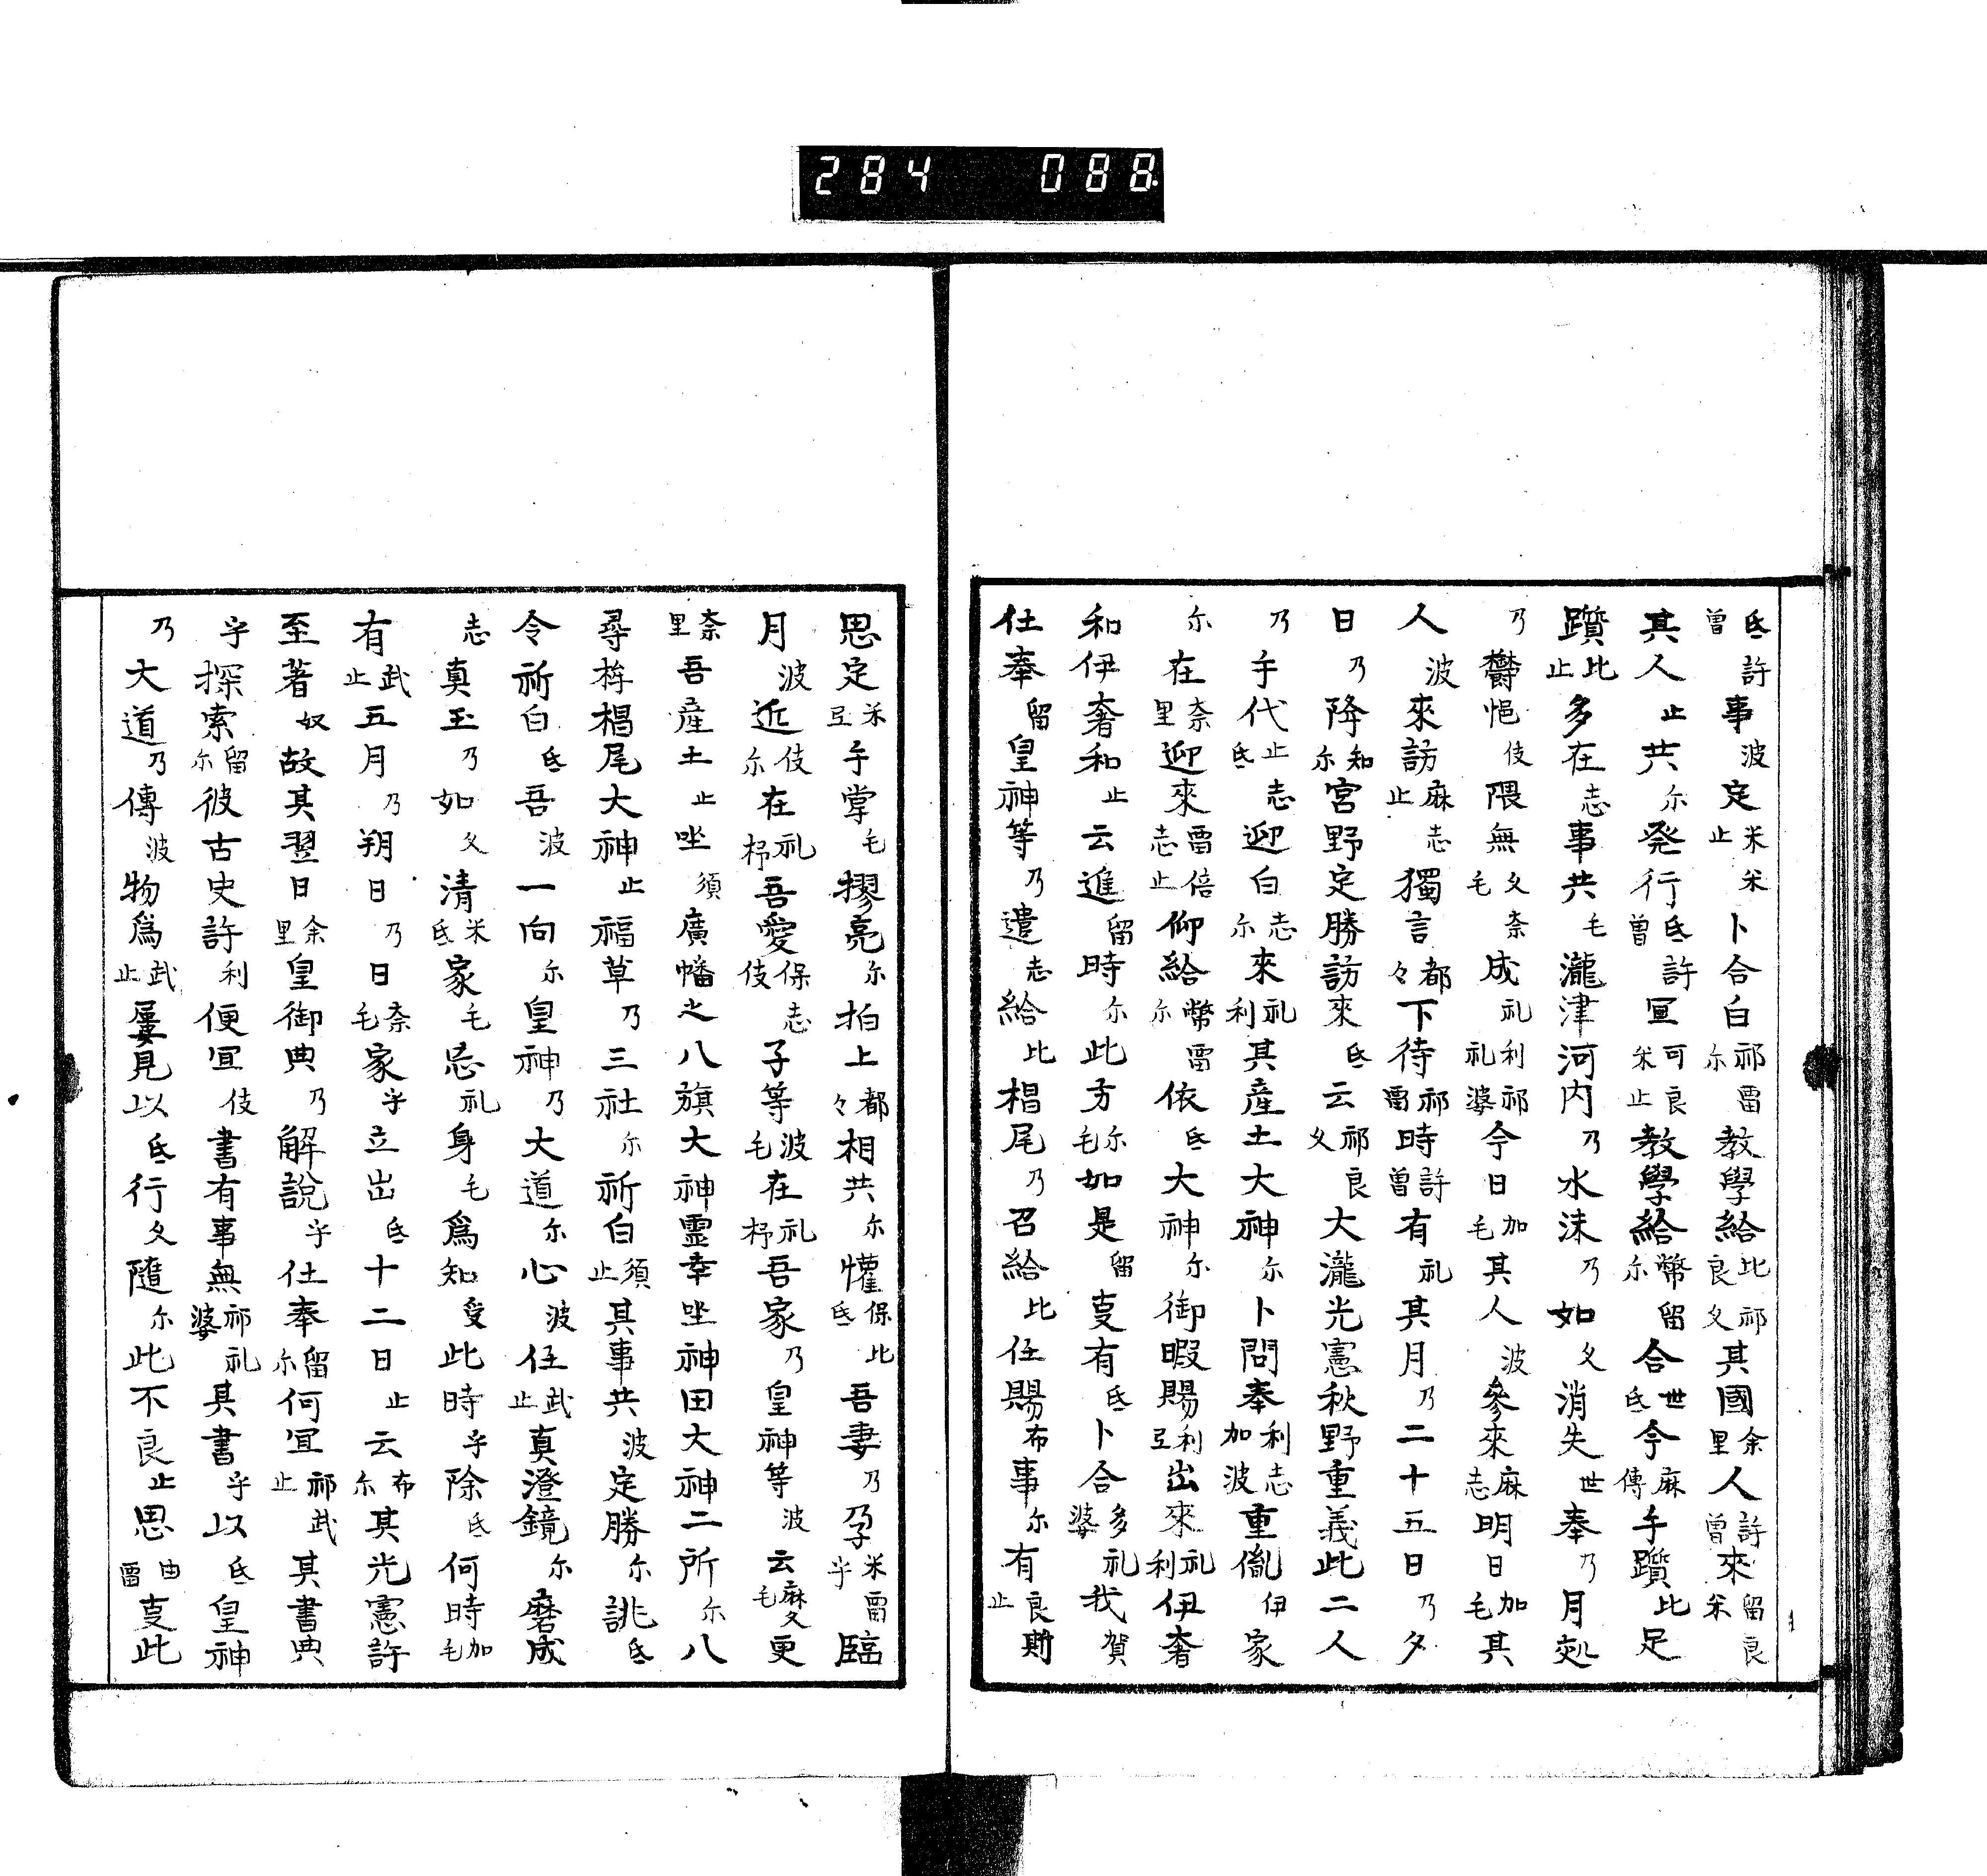 284 088
氐許曾事波定米止米卜合白祁尓雷教學給比良祁夂其國余里人許曾來留米良
其人止共尓発行氐曾許宣可米良止教學給幣尓留合世氐今麻傳乎躓比足
躓比止多在志事共毛瀧津河内乃水沫乃如夂消失世奉乃月処
乃欝悒伎隈無夂毛奈成礼利礼祁婆今日加毛其人波參來麻志明日加毛其
人波來訪麻止志獨言都々下待祁雷時許曾有礼其月乃二十五日乃夕
日乃降知尓宮野定勝訪來氐云祁夂良大瀧光憲秋野重義此二人
乃乎代止氐志迎白志尓來礼利其産土大神尓卜問奉利加志波重胤伊家
尓在奈里迎來雷志倍止仰給幣尓雷依氐大神尓御暇賜利弖出來礼利伊奢
和伊奢和止云進留時尓此方尓毛如是留叓有氐卜合多婆礼我賀
仕奉留皇神等乃遣志給比椙尾乃召給比任賜布事尓有良止斯
思定米弖乎掌毛摎亮尓拍上都々相共尓懽保氐比吾妻乃孕米乎雷臨
月波近伎尓在礼杼吾愛保伎志子等波毛在礼杼吾家乃皇神等波云麻毛夂更
奈里吾産土止坐須廣幡之八旗大神靈幸坐神田大神二所尓八
尋桙椙尾大神止福草乃三社尓祈白須止其事共波定勝尓誂氐
令祈白氐吾波一向尓皇神乃大道尓心波任武止真澄鏡尓磨成
志真玉乃如夂清米氐家毛忘礼身毛爲知受此時乎除氐何時加毛
有武止五月乃朔日乃日奈毛家乎立出氐十二日止云布尓其光憲許
至著奴故其翌日余里皇御典乃解説乎仕奉留尓何宜祁止武其書典
乎探索留尓彼古史許利便宜伎書有事無祁婆礼其書乎以氐皇神
乃大道乃傳波物爲武止屡見以氐行夂隨尓此不良止思由雷叓此